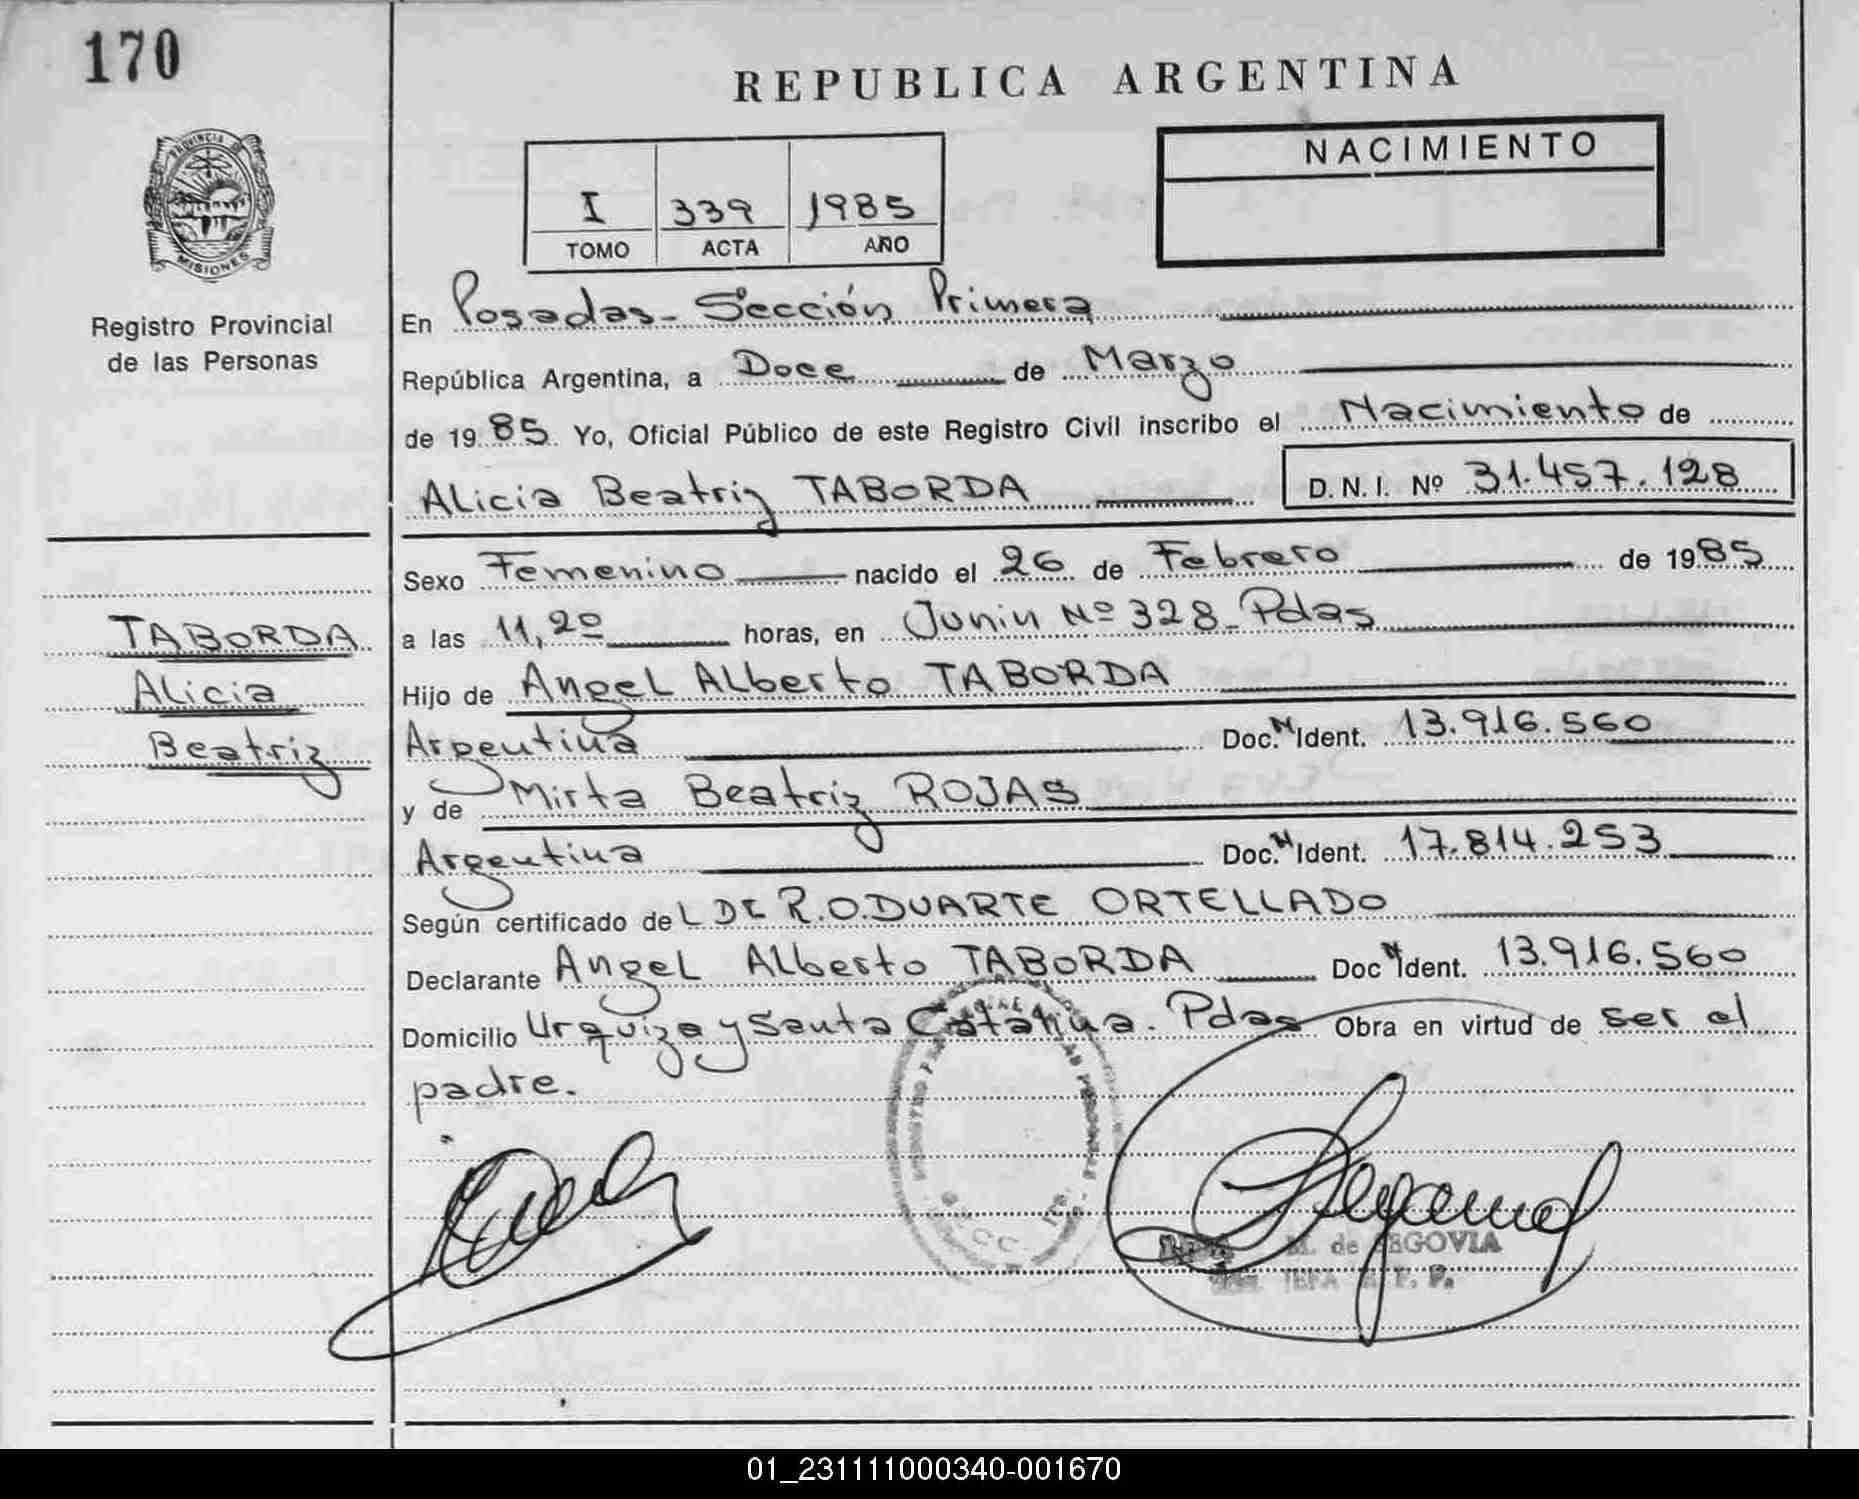 170
REPUBLICA ARGENTINA
PROVINCIA DE
MISIONES
Registro Provincial
de las Personas
I 339 1985
TOMO ACTA AÑO
NACIMIENTO
En Posadas - Sección Primera
República Argentina, a Doce de Marzo
de 1985 Yo, Oficial Público de este Registro Civil inscribo el Nacimiento de
Alicia Beatriz TABORDA D.N.I. Nº 31.457.128
Sexo Femenino nacido el 26 de Febrero de 1985
TABORDA
Alicia
Beatriz
a las 11,20 horas, en Junin Nº 328 - Pdas
Hijo de Angel Alberto TABORDA
Argentina Doc. N Ident. 13.916.560
y de Mirta Beatriz ROJAS
Argentina Doc. N Ident. 17.814.253
Según certificado del Dr R.O. DUARTE ORTELLADO
Declarante Angel Alberto TABORDA Doc N Ident. 13.916.560
Domicilio Urquiza y Santa Catalina. Pdas Obra en virtud de ser el
padre.
M. de SEGOVIA
JEFA
01_231111000340-001670